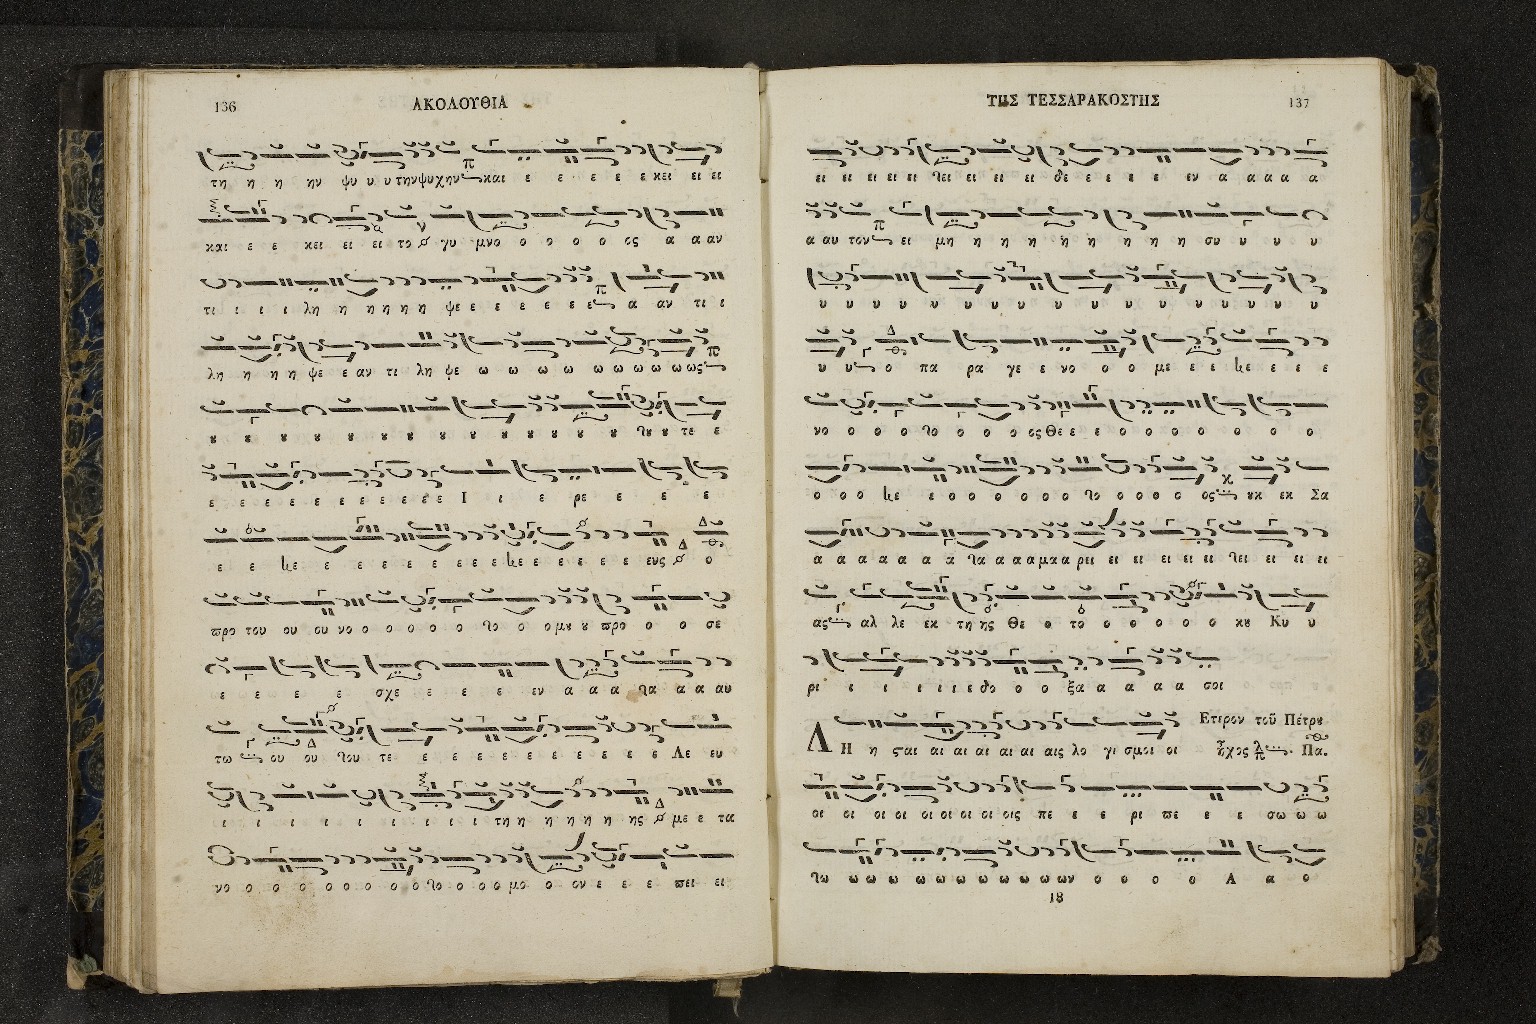 136
ΑΚΟΛΟΥΘΙΑ
τη η η ην ψυ υ υ την ψυχην και ε ε ε ε ε κει ει ει
και ε ε κει ει ει το γυ μνο ο ο ο ο ος α α αν
τι ι ι ι λη η η η η η ψε ε ε ε ε ε ε α αν τι ι
λη η η η ψε ε αν τι λη ψε ω ω ω ω ω ω ω ω ω ως
ȣ ȣ ȣ ȣ ȣ ȣ ȣ ȣ ȣ ȣ ȣ ȣ ȣ ȣ ȣ τε ε
ε ε ε ε ε ε ε ε ε ε Ι ι ε ρε ε ε ε
ε ε ε ε ε ε ε ε ε ε ε ε ε ε ε ευς ο
προ του ου ου νο ο ο ο ο ο ο ο μȣ ȣ προ ο ο σε
ε ε ε ε σχε ε ε ε ε εν α α α α α αυ
τω ου ου τε ε ε ε ε ε ε ε ε ε ε Λε ευ
ι ι ι ι ι ι ι ι ι ι τη η η η η η ης με ε τα
νο ο ο ο ο ο ο ο ο ο ο ο μο ο ον ε ε ε πει ει
ΤΗΣ ΤΕΣΣΑΡΑΚΟΣΤΗΣ
137
ει ει ει ει ει ει ει ει ει δε ε ε ε ε εν α α α α α
α αυ τον ει μη η η η η η η η η συ υ υ υ υ
υ υ υ υ υ υ υ υ υ υ υ υ υ υ υ υ υ υ
υ υ ο πα ρα γε ε νο ο ο με ε ε ε ε ε
νο ο ο ο ο ο ο ο ος Θε ε ε ο ο ο ο ο ο ο
ο ο ο ε ο ο ο ο ο ο ο ο ο ο ο ος ȣκ εκ Σα
α α α α α α α α α α μα α ρει ει ει ει ει ει ει ει ει ει
ας αλ λε εκ τη ης Θε ο το ο ο ο ο ο ο κȣ Κυ υ
ρι ι ι ι ι ι ε δο ο ο ξα α α α α α σοι
Ετερον τοῦ Πέτρȣ
Λ Η η ςαι αι αι αι αι αι αις λο γι σμοι οι ἦχος Πα.
οι οι οι οι οι οι οι οι οις πε ε ε ρι πε ε ε σω ω ω
ω ω ω ω ω ω ω ω ω ω ων ο ο ο ο Α α ο
18